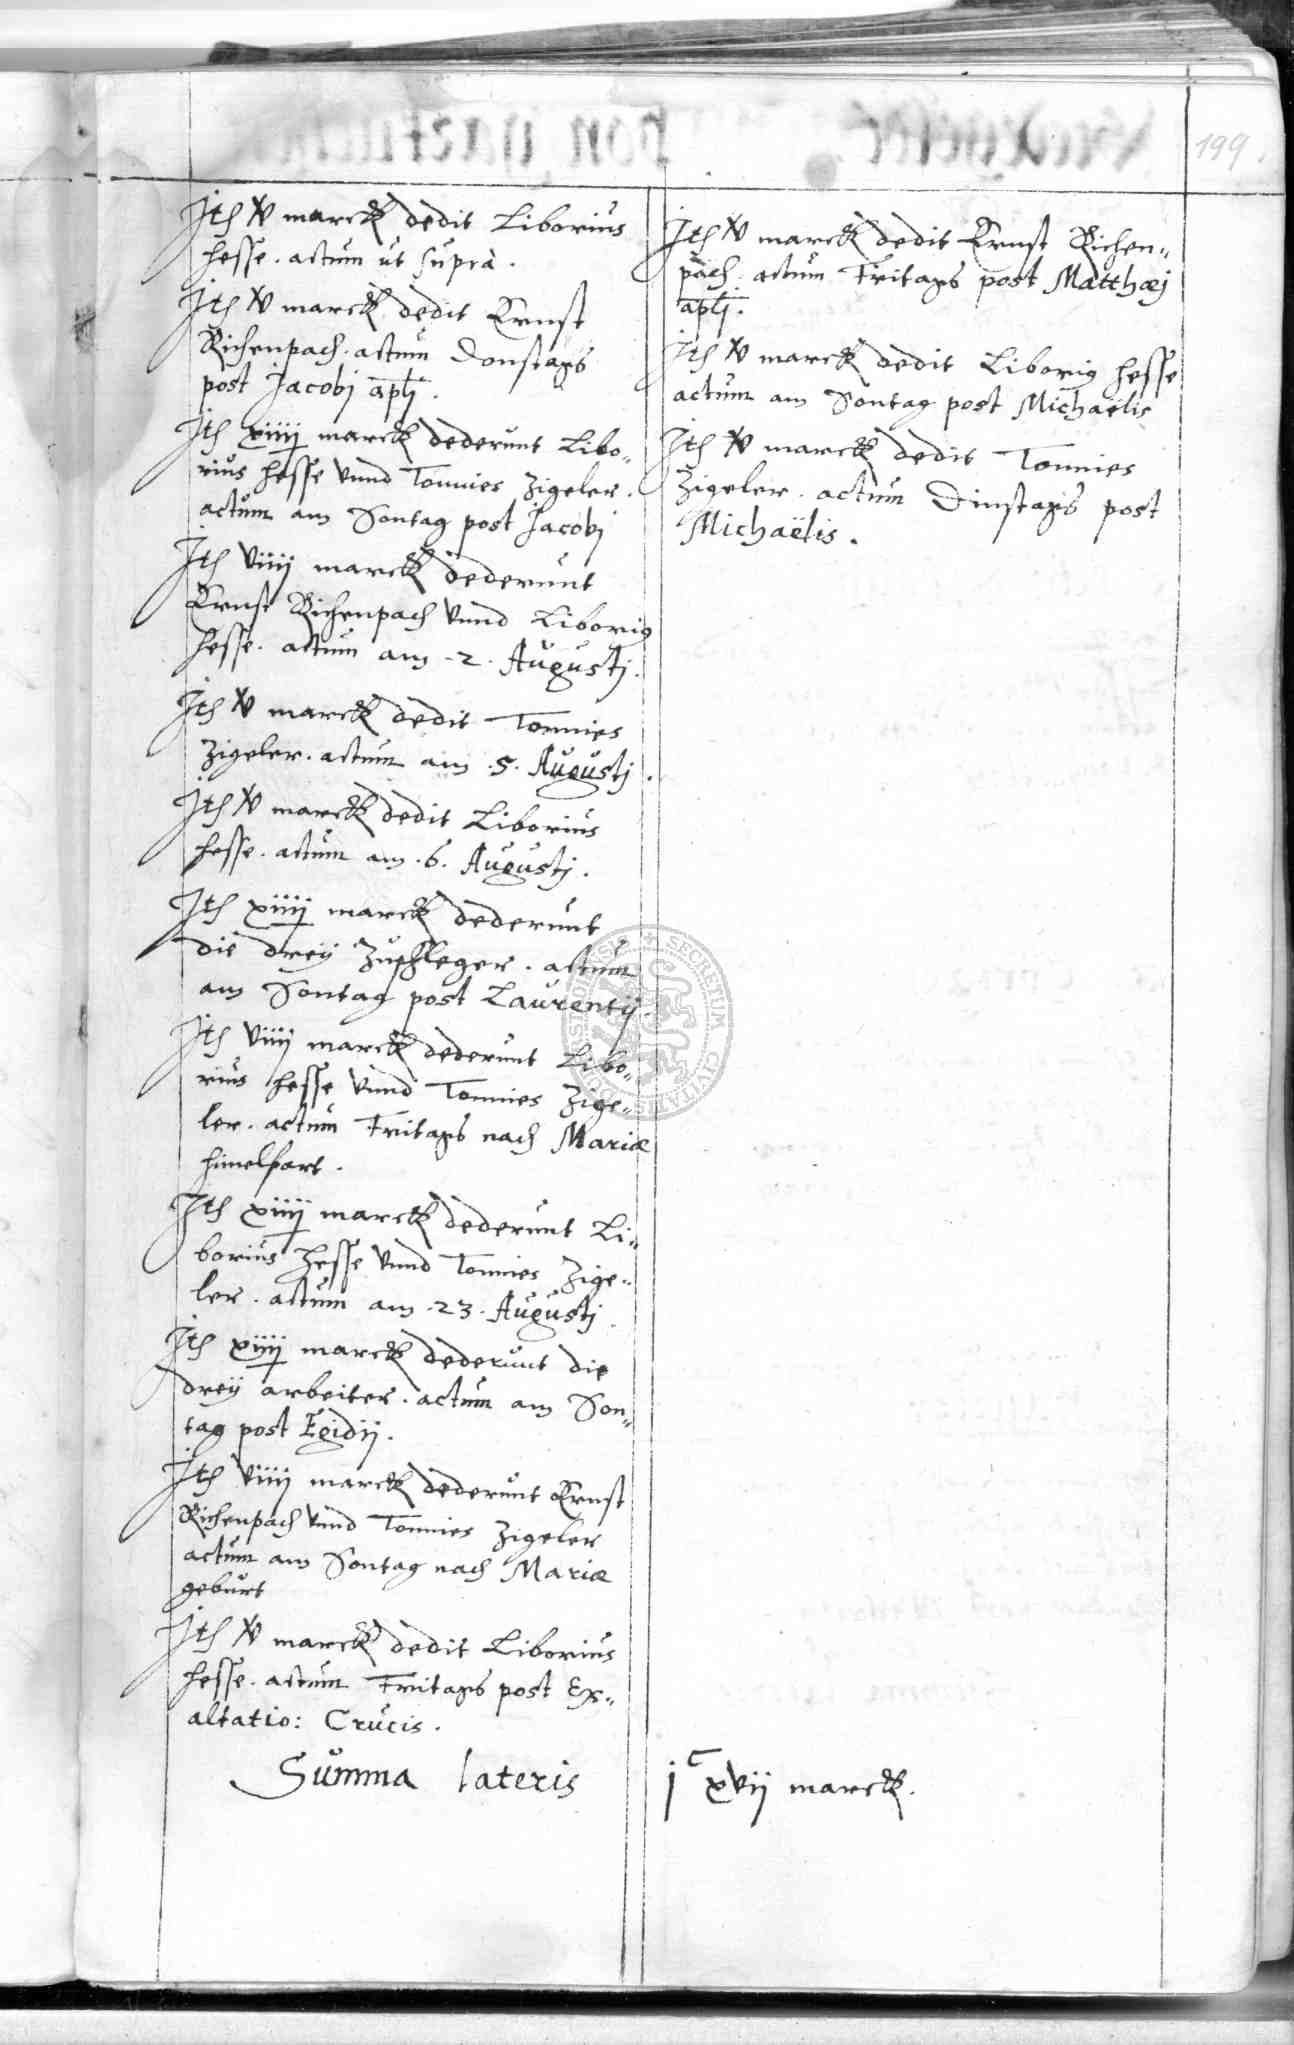 199.
Itē v marck dedit Liborius
hesse. actum ut supra.
Itē v marck dedit Ernst
Richenpach. actum Donstags
post Jacobj apłi.
Itē xiiij marck dederunt Libo„
rius hesse vnnd Tonnies Zigeler.
actum am Sontag post Jacobj
Itē viiij marck dederunt
Ernst Richenpach vnnd Liborig
hesse. actum am .2. Augustj.
Itē v marck dedit Tonnies
Zigeler. actum am .5. Augustj.
Itē v marck dedit Liborius
hesse. actum am .6. Augustj.
Itē xiiij marck dederunt
die dreÿ Zupfleger. actum
am Sontag post Laurentij.
Itē viiij marck dederunt Libo„
rius hesse vnnd Tonnies Zige„
ler. actum Fritags nach Mariæ
himelfart.
Itē xiiij marck dederunt Li„
borius Hesse vnnd Tonnies Zige„
ler. actum am .23. Augustj.
Itē xiiij marck dederunt die
dreÿ arbeiter. actum am Son„
tag post Egidij.
Itē viiij marck dederunt Ernst
Richenpach vnnd Tonnies Zigeler
actum am Sontag nach Mariæ
geburt
Itē v marck dedit Liborius
hesse. actum Fritags post Ex„
altatio: Crucis.
Itē v marck dedit Ernst Richen„
pach. actum Fritags post Matthæj
apłj.
Itē v marck dedit Liborig hesse
actum am Sontag post Michaëlis
Itē v marck dedit Tonnies
Zigeler. actum Dinstags post
Michaëlis.
Summa lateris j^c xvij marck.
SECRETUM CIVITATIS